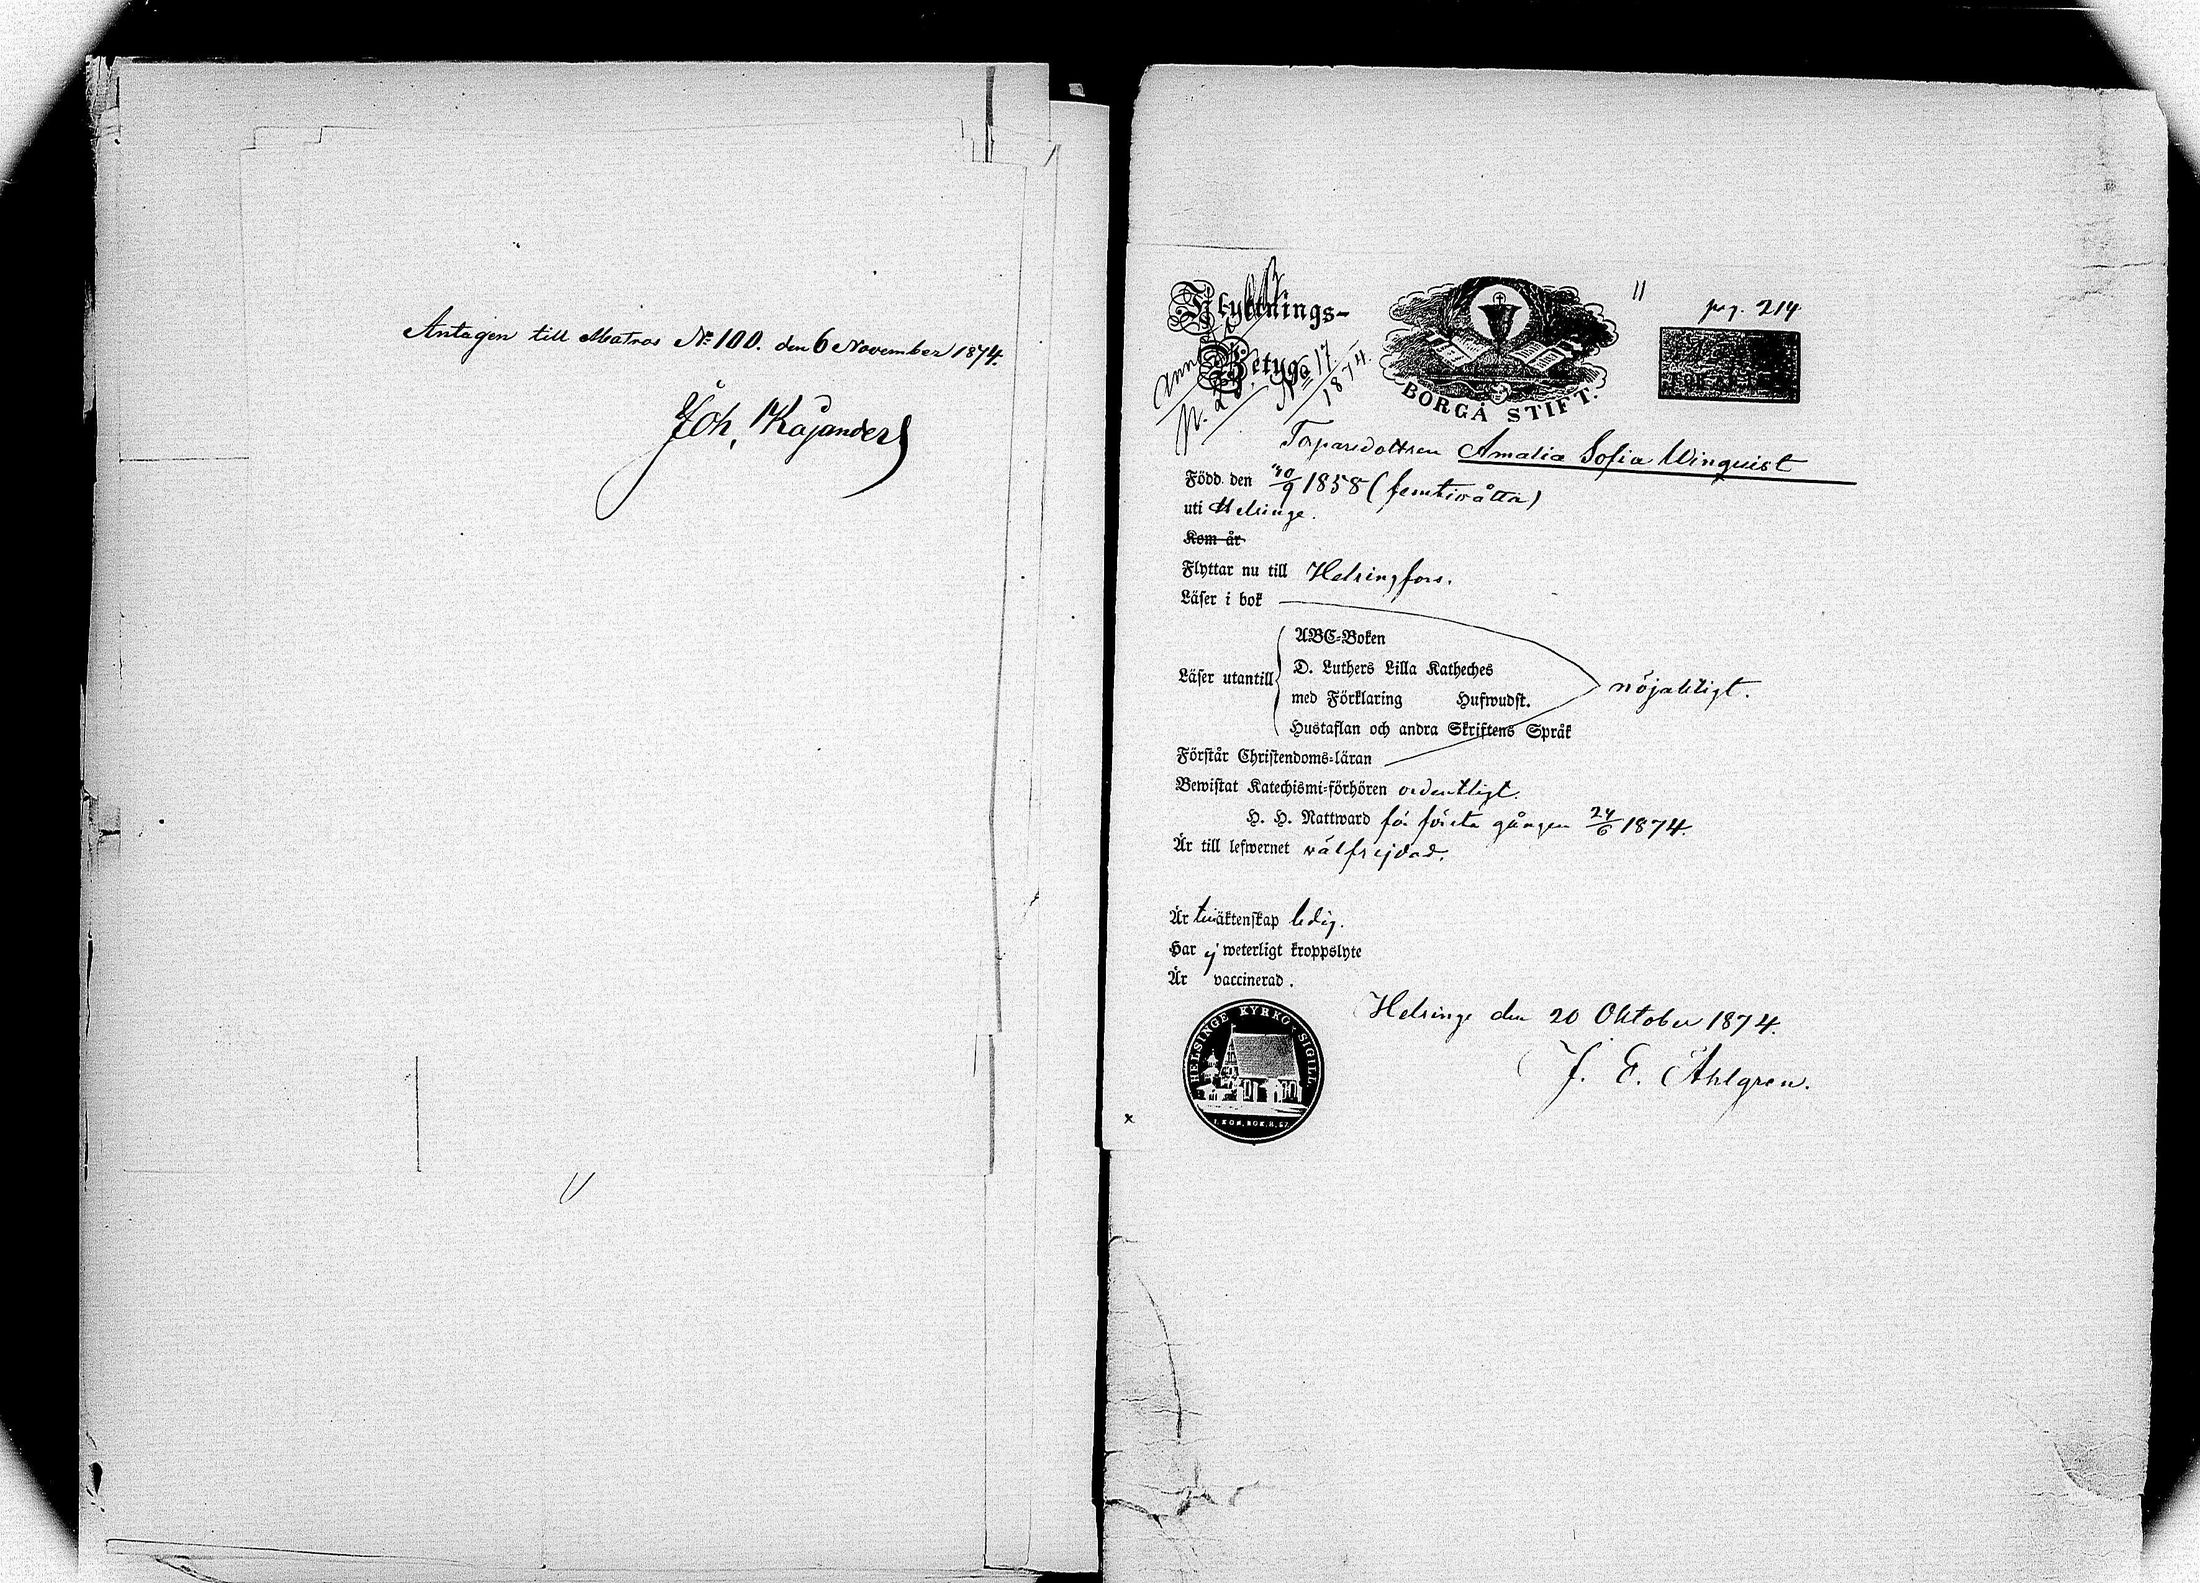 Antagen till Matros No 100. den 6 November 1874.
Joh. Kajander
Flyttnings-
Betyg
No 17
1874
BORGÅ STIFT.
11
pag. 214
Torparedottren Amalia Sofia Winquist
Född den 30/9 1858 (femtioåtta)
uti Helsinge.
Kom år
Flyttar nu till Helsingfors.
Läser i bok
ABC-Boken
D. Luthers Lilla Katheches
Läser utantill
med Förklaring Hufwudst.
nöjaktigt.
Hustaflan och andra Skriftens Språk
Förstår Christendoms-läran
Bewistat Katechismi-förhören ordentligt.
H. H. Nattward för första gången 24/6 1874.
Är till lefwernet välfrejdad.
Är till äktenskap ledig.
Har ej weterligt kroppslyte
Är vaccinerad.
Helsinge den 20 Oktober 1874.
HELSINGE KYRKO SIGILL.
J. E. Ahlgren.
x